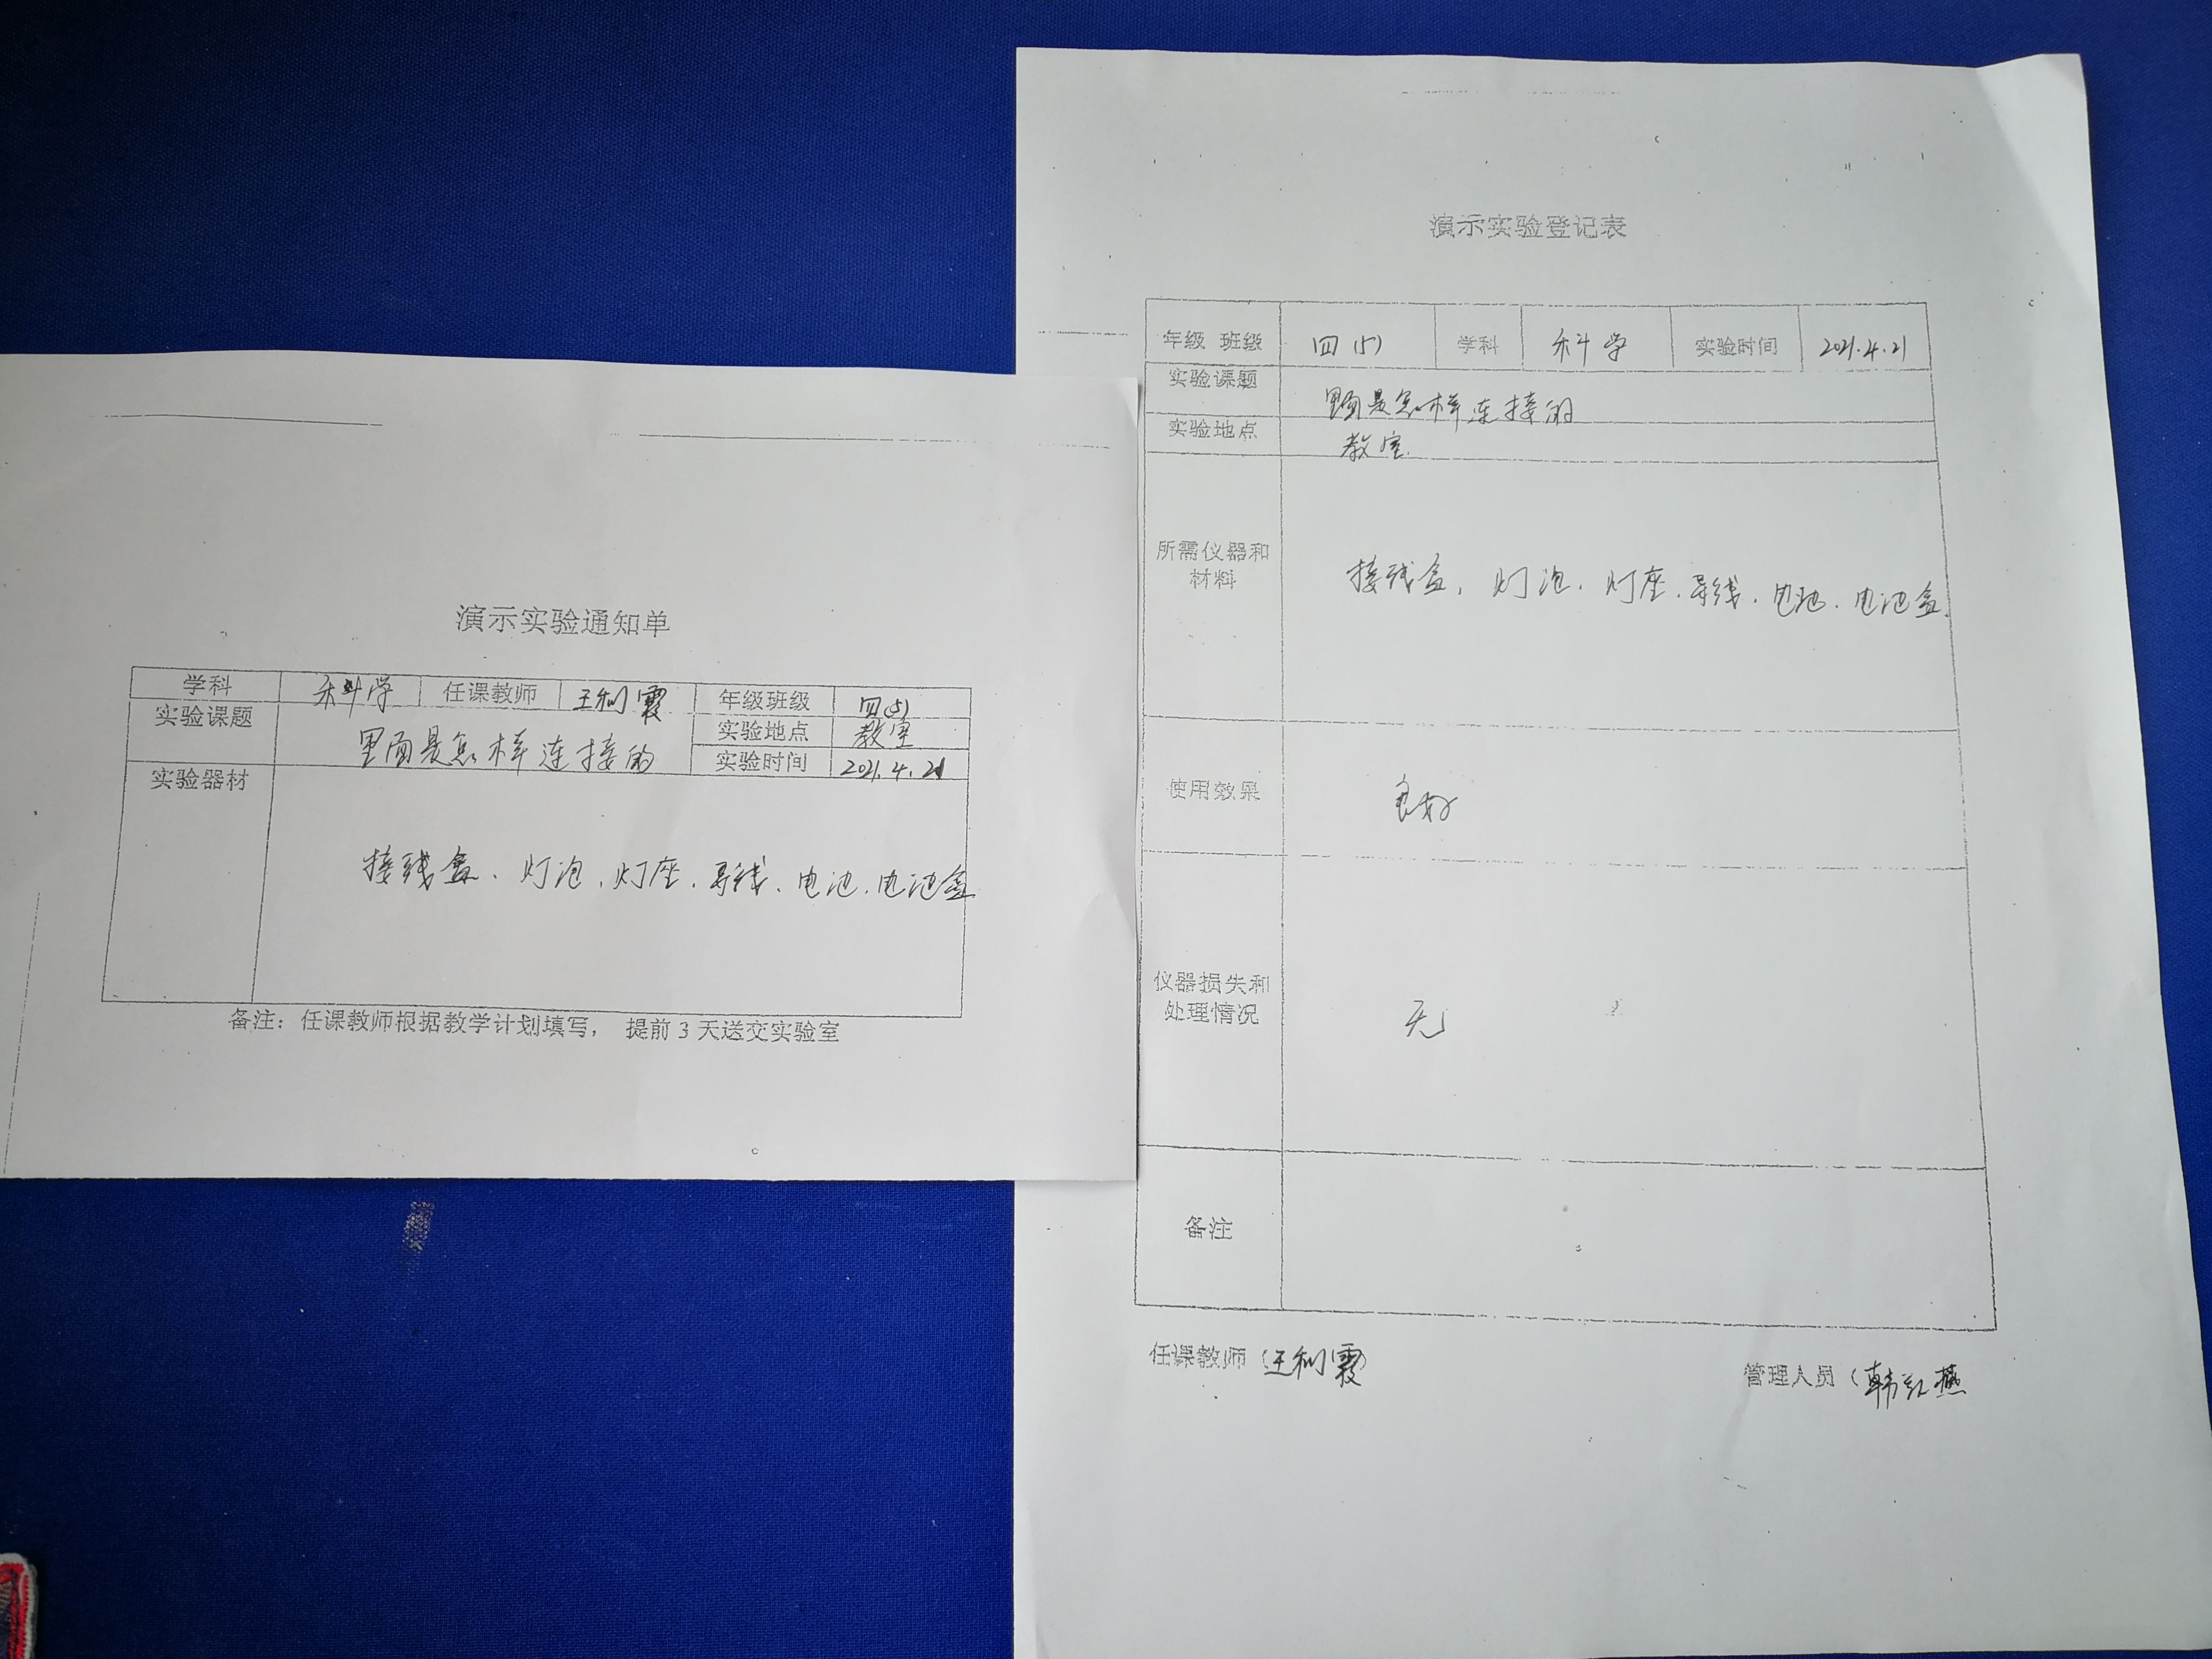 演示实验通知单
学科 科学 任课教师 王利霞 年级班级 四(5)
实验课题 里面是怎样连接的 实验地点 教室
实验时间 2021.4.21
实验器材
接线盒、灯泡、灯座、导线、电池、电池盒
备注：任课教师根据教学计划填写， 提前 3 天送交实验室
演示实验登记表
年级 班级 四(5) 学科 科学 实验时间 2021.4.21
实验课题 里面是怎样连接的
实验地点 教室.
所需仪器和
材料
接线盒、灯泡、灯座、导线、电池、电池盒.
使用效果 良好
仪器损失和
处理情况 无
备注
任课教师（王利霞） 管理人员（韩红燕